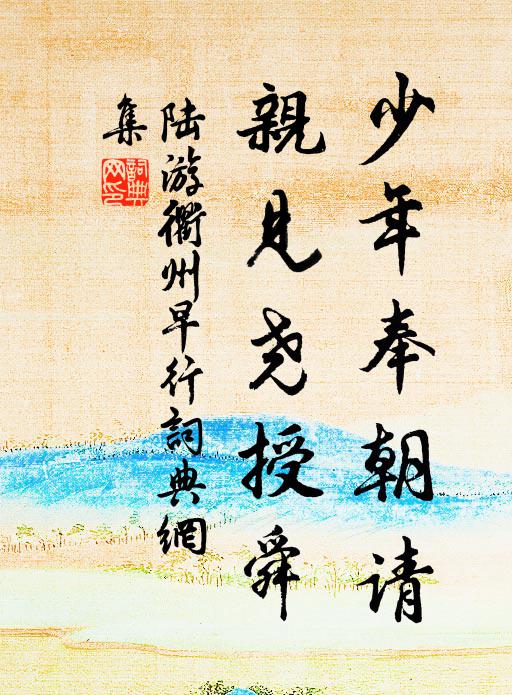 少年奉朝请
親見尧授舜
陆游衢州早行詞典網
集
詞典网印